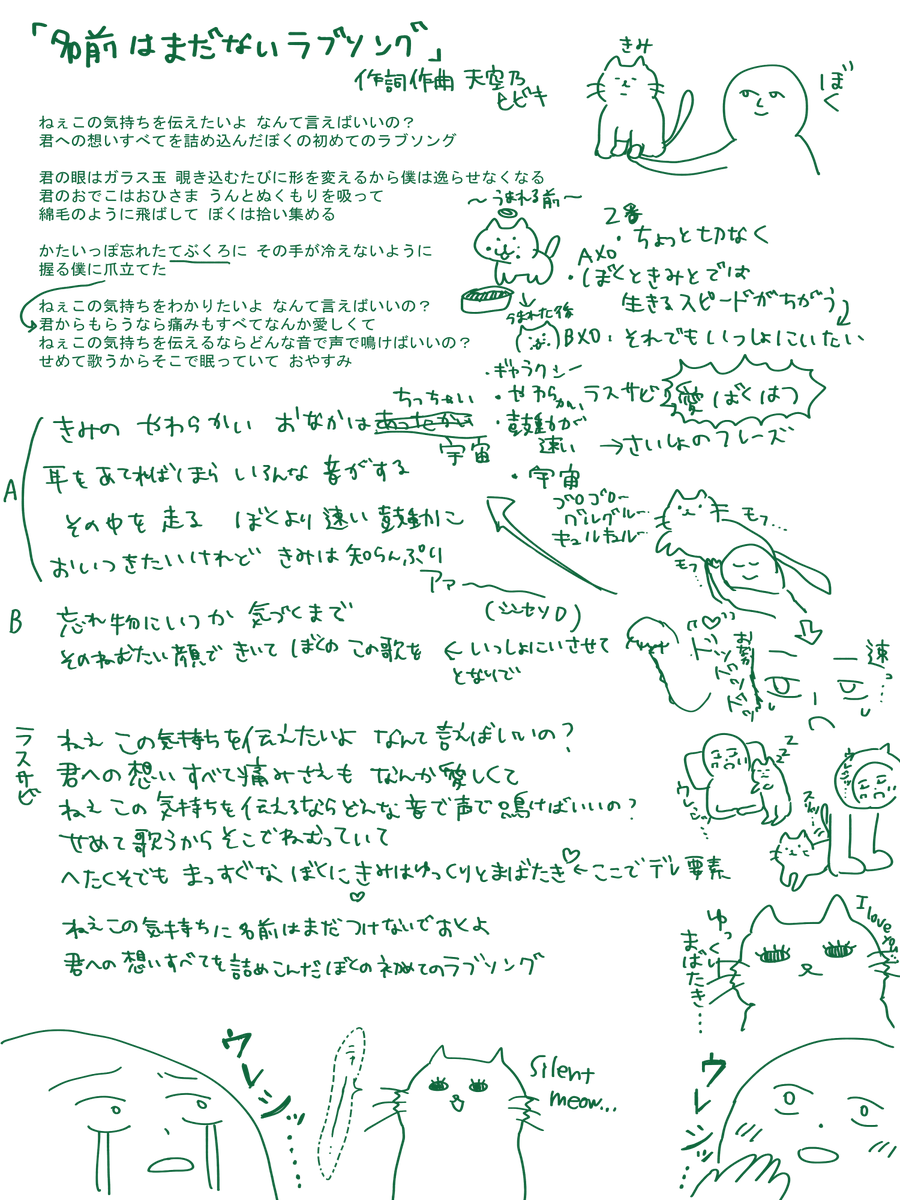 「名前はまだないラブソング」
作詞作曲 天空乃
ヒビキ
きみ
ぼく
ねぇこの気持ちを伝えたいよ なんて言えばいいの？
君への想いすべてを詰め込んだぼくの初めてのラブソング
君の眼はガラス玉 覗き込むたびに形を変えるから僕は逸らせなくなる
君のおでこはおひさま うんとぬくもりを吸って
綿毛のように飛ばして ぼくは拾い集める
かたいっぽ忘れたてぶくろに その手が冷えないように
握る僕に爪立てた
ねぇこの気持ちをわかりたいよ なんて言えばいいの？
君からもらうなら痛みもすべてなんか愛しくて
ねぇこの気持ちを伝えるならどんな音で声で鳴けばいいの？
せめて歌うからそこで眠っていて おやすみ
〜うまれる前〜
うまれた後
2番
・ちょっと切なく
Aメロ
・ぼくときみとでは
生きるスピードがちがう
Bメロ：それでもいっしょにいたい
・ギャラクシー
・やわらかい
・鼓動が
速い
・宇宙
ラスサビ
愛ばくはつ
→さいしょのフレーズ
A
きみの やわらかい おなかは あったかい
ちっちゃい
宇宙
耳をあてればほら いろんな 音がする
その中を 走る ぼくより 速い 鼓動に
おいつきたいけれど きみは 知らんぷり
アァー
ゴロゴロー
グルグルー
キュルキュルー
モフ…
モフ…
B
忘れ物にいつか 気づくまで
そのねむたい顔で きいて ぼくの この歌を
(シンセソロ)
← いっしょにいさせて
となりで
"♡"
ドッ
ドッ
ドッ
速っ…
ラスサビ
ねぇ この気持ちを伝えたいよ なんて言えばいいの？
君への想い すべて痛みさえも なんか愛しくて
ねぇ この気持ちを伝えるならどんな音で声で鳴けばいいの？
せめて歌うからそこでねむっていて
へたくそでも まっすぐな ぼくに きみはゆっくりとまばたき♡ ←ここでデレ要素
ねぇこの気持ちに名前はまだつけないでおくよ
君への想いすべてを詰めこんだぼくの初めてのラブソング
zzz
ウレシッ…
ウレシッ…
スリッ…
I love you...
ゆっくり
まばたき…
ウレシッ…
Silent
meow...
ウレシッ…